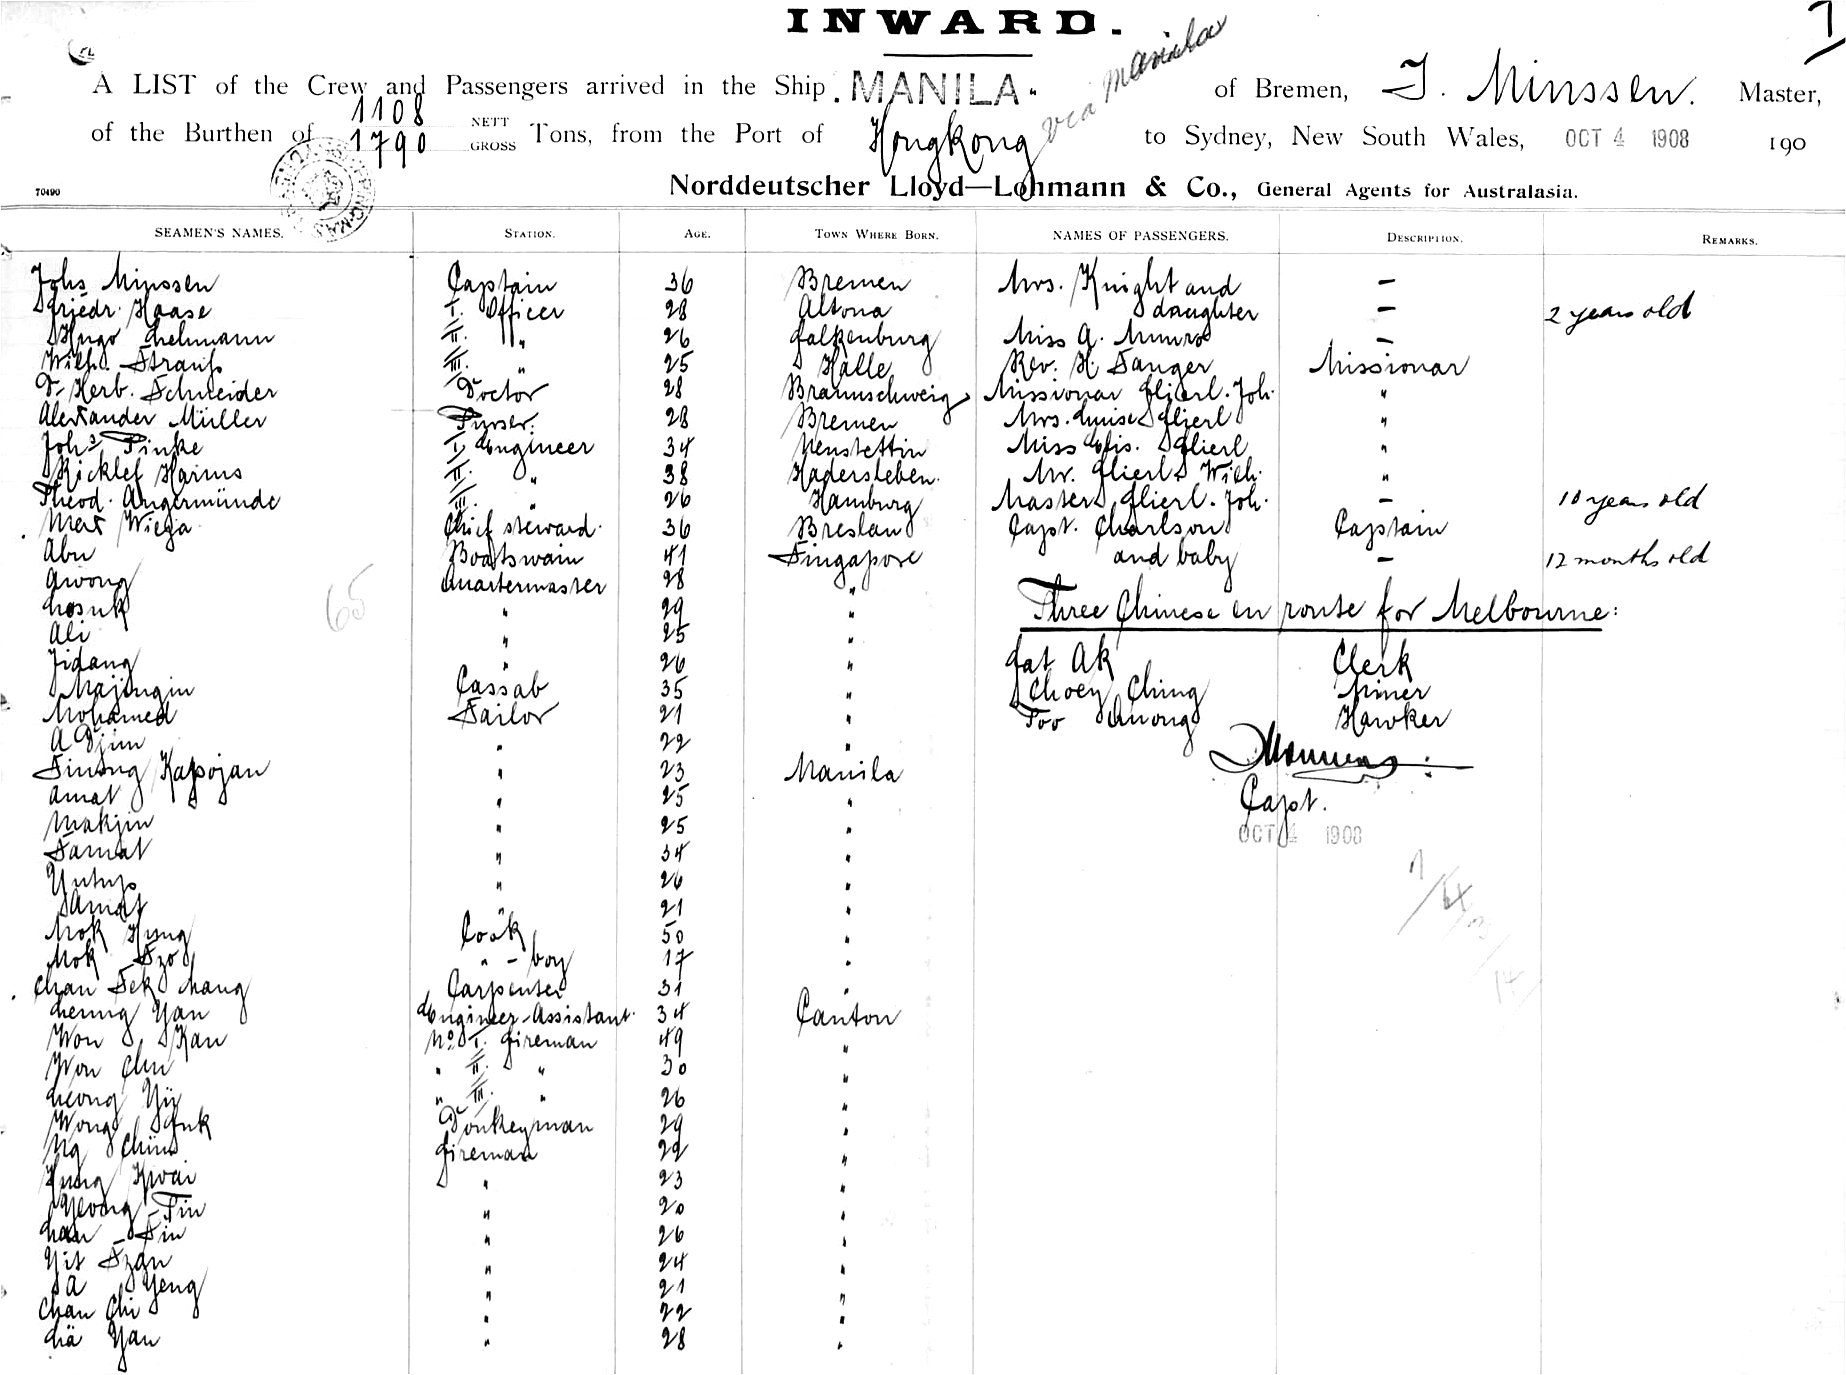 INWARD.
A LIST of the Crew and Passengers arrived in the Ship MANILA. of Bremen, J. Minssen. Master,
via Manila
of the Burthen of 1108 NETT 1790 GROSS Tons, from the Port of Hongkong to Sydney, New South Wales, OCT 4 1908 190
70490 Norddeutscher Lloyd—Lohmann & Co., General Agents for Australasia.
SEAMEN'S NAMES. STATION. AGE. TOWN WHERE BORN. NAMES OF PASSENGERS. DESCRIPTION. REMARKS.
Johs Minssen Captain 36 Bremen Mrs. Knight and —
Friedr. Haase I. Officer 28 Altona daughter — 2 years old
Hugo Lehmann II. " 26 Falkenburg Miss A. Munro —
Wilh. Strauß III. " 25 Halle Rev. H. Sanger Missionar
Dr Herb. Schneider Doctor 28 Braunschweig Missionar Flierl. Joh. "
Alexander Müller Purser. 28 Bremen Mrs. Luise Flierl "
Johs Finke I. Engineer 34 Neustettin Miss Elis. Flierl "
Ricklef Harms II. " 38 Hadersleben. Mr. Flierl Wilh. "
Theod. Angermünde III. " 26 Hamburg Master Flierl. Joh. — 10 years old
Max Wieja Chief steward. 36 Breslau Capt. Charlson Captain
Abu Boatswain 41 Singapore and baby — 12 months old
Awong Quartermaster 28 "
65
Losuk " 29 " Three Chinese en route for Melbourne:
Ali " 25 "
Jidang " 26 " Fat Ak Clerk
Majingin Cassab 35 " Choey Ching Miner
Mohamed Sailor 21 " Too Quong Hawker
A Djim " 22 "
Sinong Kapojan " 23 Manila
Amat " 25 " Capt.
Makjin " 25 " OCT 4 1908
Samat " 34 "
Yutup " 26 "
Amat " 21 "
Mok Hung Cook 50 "
Mok Szo " - boy 17 "
Chan Sek Chang Carpenter 31 "
Leung Yan Engineer-Assistant. 34 Canton
Won Kan No. I. Fireman 49 "
Won Chu " II. " 30 "
Leong Yü " III. " 26 "
Wong Fuk Donkeyman 29 "
Ng Chün Fireman 22 "
Hung Kwai " 23 "
Yeong Tin " 20 "
Lau Sin " 26 "
Yit Szan " 24 "
A Yeng " 21 "
Chan Chi " 22 "
Lä Yan " 28 "